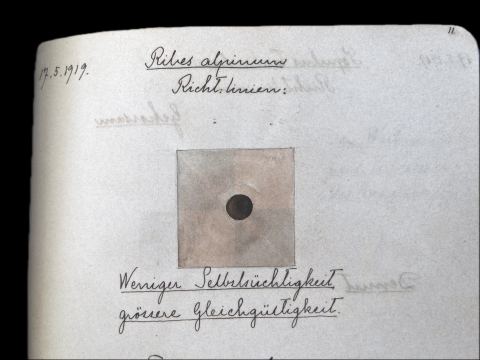 11
17.5.1919.
Ribes alpinum
Richtlinien:
Weniger Selbstsüchtigkeit,
grössere Gleichgültigkeit.